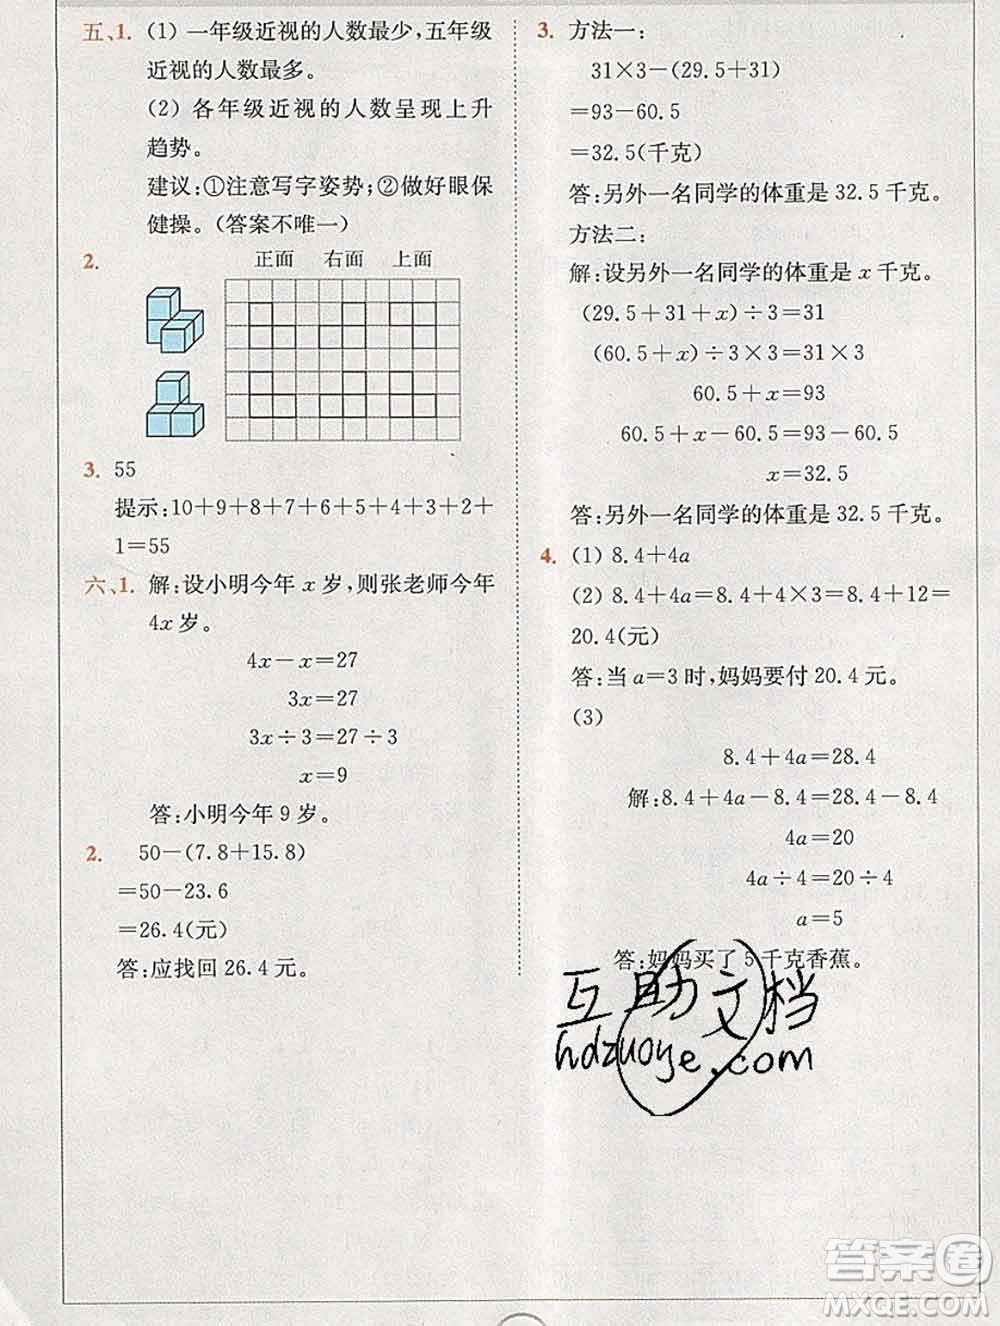 五、1. (1) 一年级近视的人数最少,五年级
近视的人数最多。
(2) 各年级近视的人数呈现上升
趋势。
建议:①注意写字姿势;②做好眼保
健操。(答案不唯一)
2. 正面 右面 上面
3. 55
提示:10+9+8+7+6+5+4+3+2+
1=55
六、1. 解:设小明今年 x 岁,则张老师今年
4x 岁。
4x－x=27
3x=27
3x÷3=27÷3
x=9
答:小明今年 9 岁。
2. 50－(7.8+15.8)
=50－23.6
=26.4(元)
答:应找回 26.4 元。
3. 方法一:
31×3－(29.5+31)
=93－60.5
=32.5(千克)
答:另外一名同学的体重是 32.5 千克。
方法二:
解:设另外一名同学的体重是 x 千克。
(29.5+31+x)÷3=31
(60.5+x)÷3×3=31×3
60.5+x=93
60.5+x－60.5=93－60.5
x=32.5
答:另外一名同学的体重是 32.5 千克。
4. (1) 8.4+4a
(2) 8.4+4a=8.4+4×3=8.4+12=
20.4(元)
答:当 a=3 时,妈妈要付 20.4 元。
(3)
8.4+4a=28.4
解:8.4+4a－8.4=28.4－8.4
4a=20
4a÷4=20÷4
a=5
答:妈妈买了 5 千克香蕉。
互助文档
hdzuoye.com
答案圈
MXQE.COM